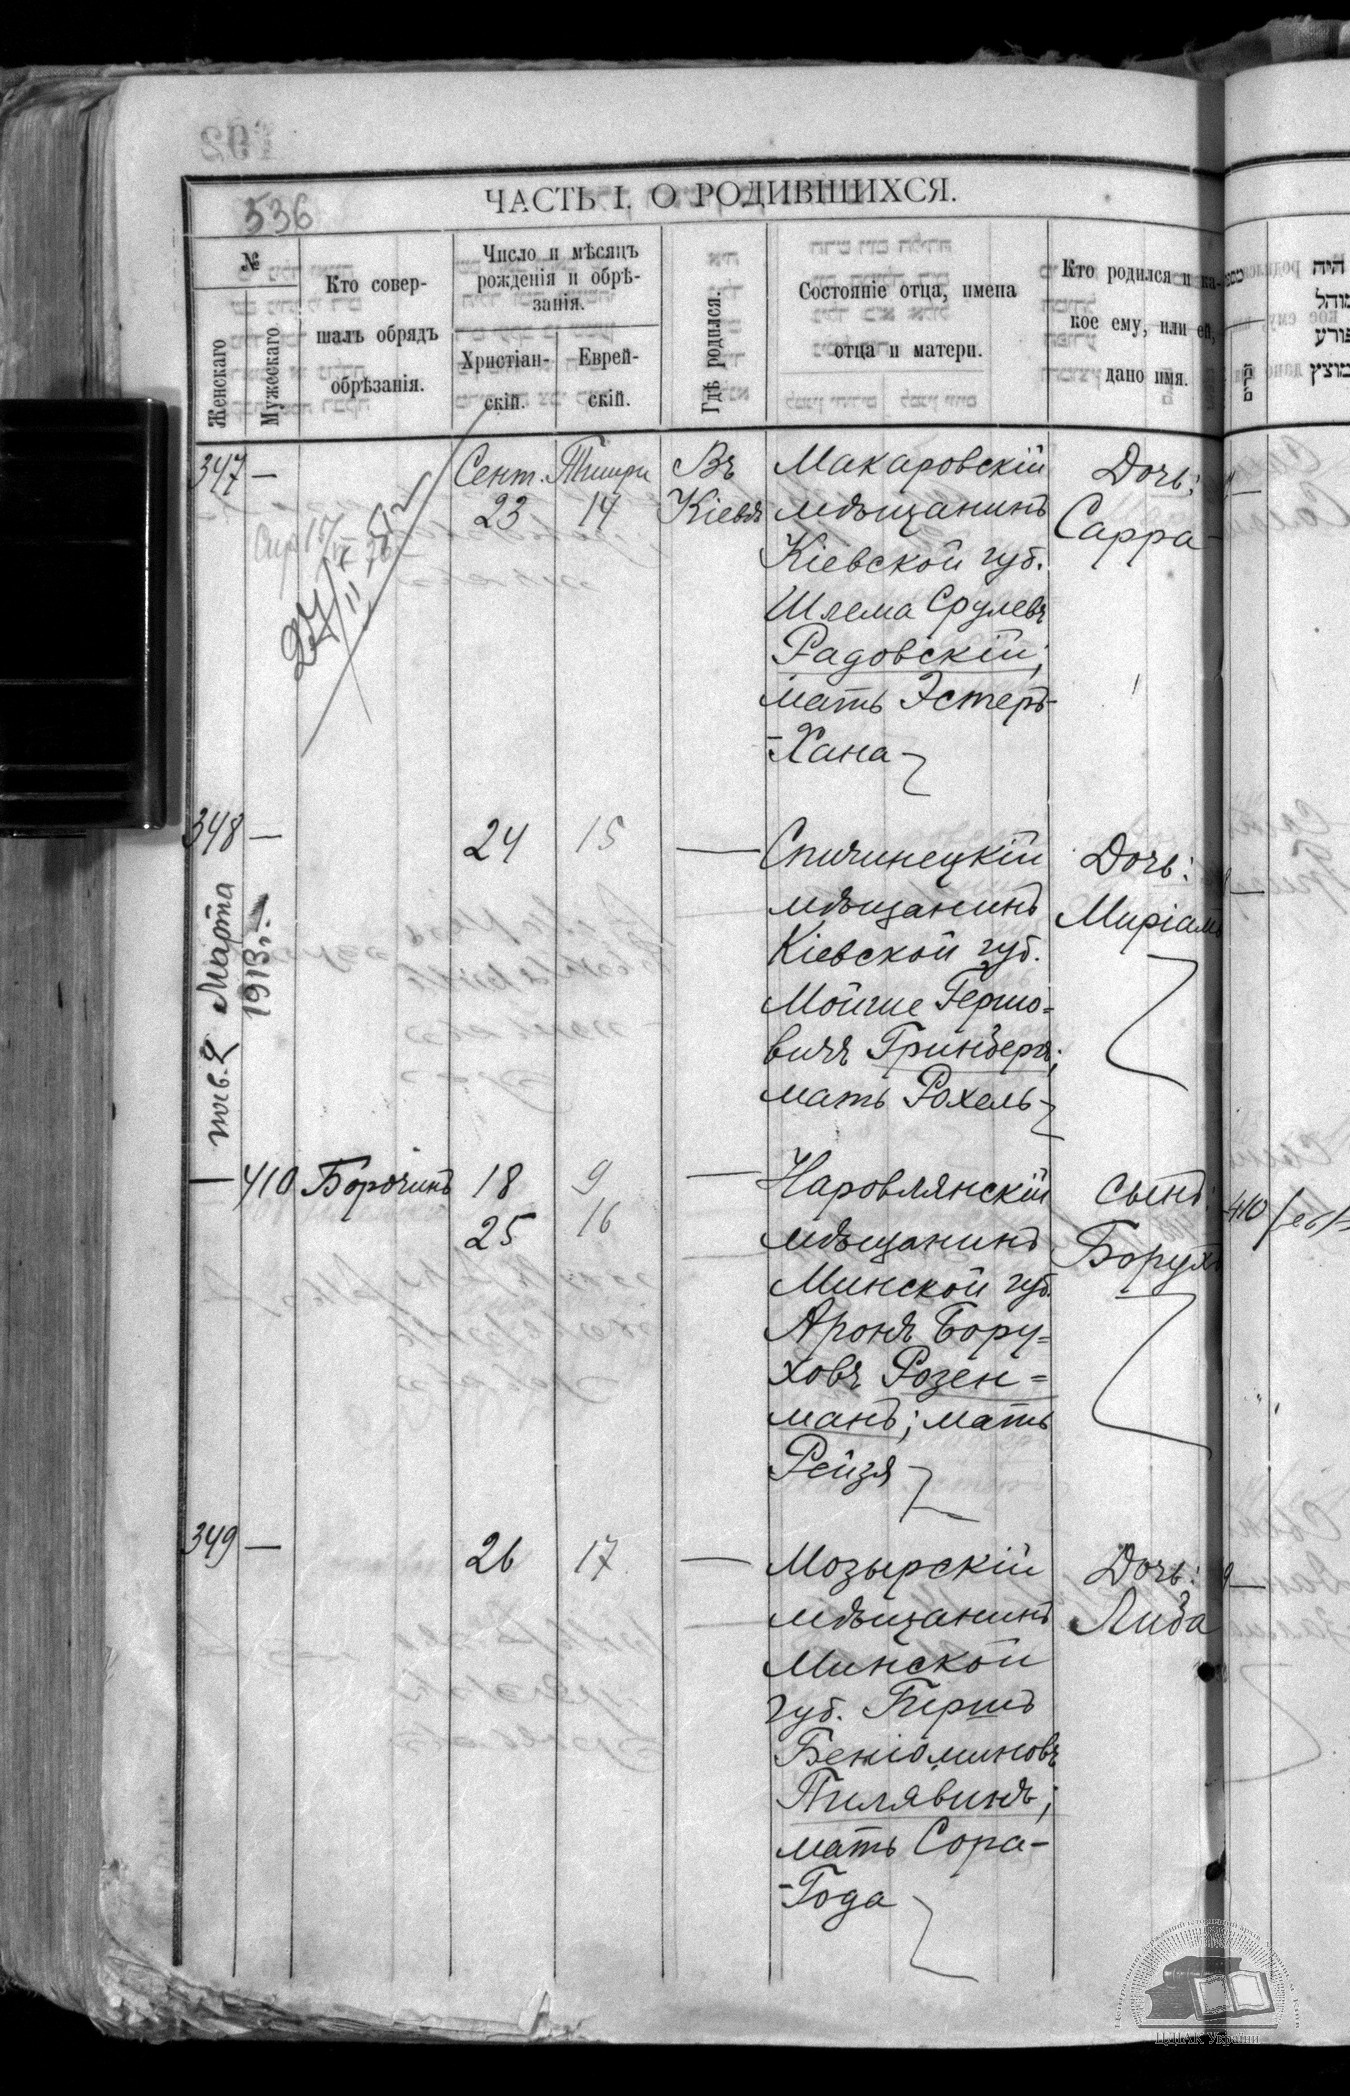 536
ЧАСТЬ I. О РОДИВШИХСЯ.
№
Женскаго
Мужескаго
Кто совер-
шалъ обрядъ
обрѣзанія.
Число и мѣсяцъ
рожденія и обрѣ-
занія.
Христіан-
скій.
Еврей-
скій.
Гдѣ родился.
Состояніе отца, имена
отца и матери.
Кто родился и ка-
кое ему, или ей,
дано имя.
347 —
Сент. Тишри
23 14
Въ
Кіевѣ
Макаровскій
мѣщанинъ
Кіевской губ.
Шлема Срулевъ
Радовскій;
мать Эстеръ-
-Хана
Дочь:
Сарра
27/II
348 —
24 15
—
Спичинецкій
мѣщанинъ
Кіевской губ.
Мойше Гершо-
вичъ Гринбергъ;
мать Рохель
Дочь:
Миріамъ
Марта
1913г.
— 410 Борочинъ 18 9
25 16
—
Наровлянскій
мѣщанинъ
Минской губ.
Аронъ Бору=
ховъ Розен=
манъ; мать
Рейзя
Сынъ:
Борухъ
410
349 —
26 17
—
Мозырскій
мѣщанинъ
Минской
губ. Гершъ
Беніоминовъ
Пилявинъ;
мать Сора-
-Года
Дочь:
Либа
היה
מוהל
פורע
מוצץ
ЦДІАК України